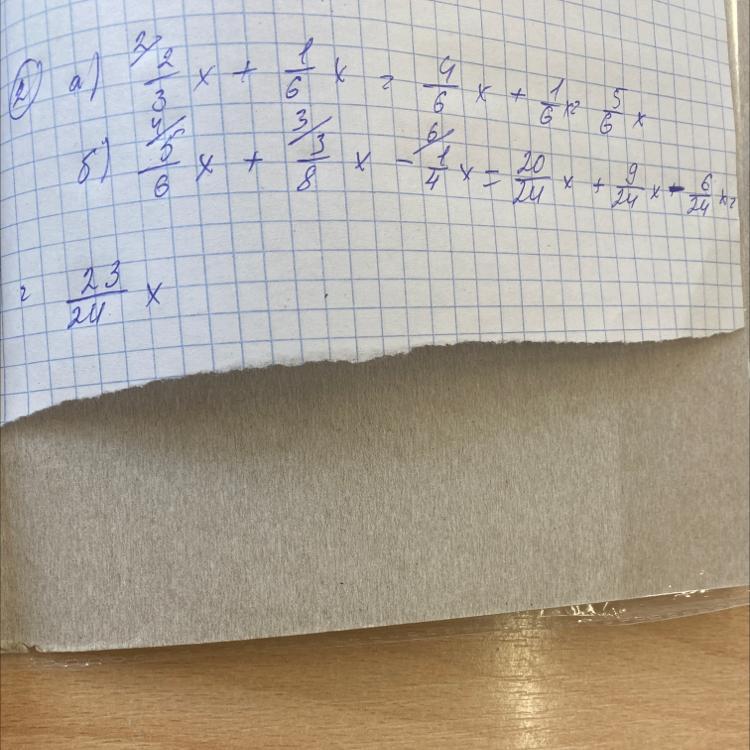 2 а) 2/ 2/3 x + 1/6 x = 4/6 x + 1/6 x = 5/6 x
б) 4/ 5/6 x + 3/ 3/8 x - 6/ 1/4 x = 20/24 x + 9/24 x - 6/24 x =
= 23/24 x